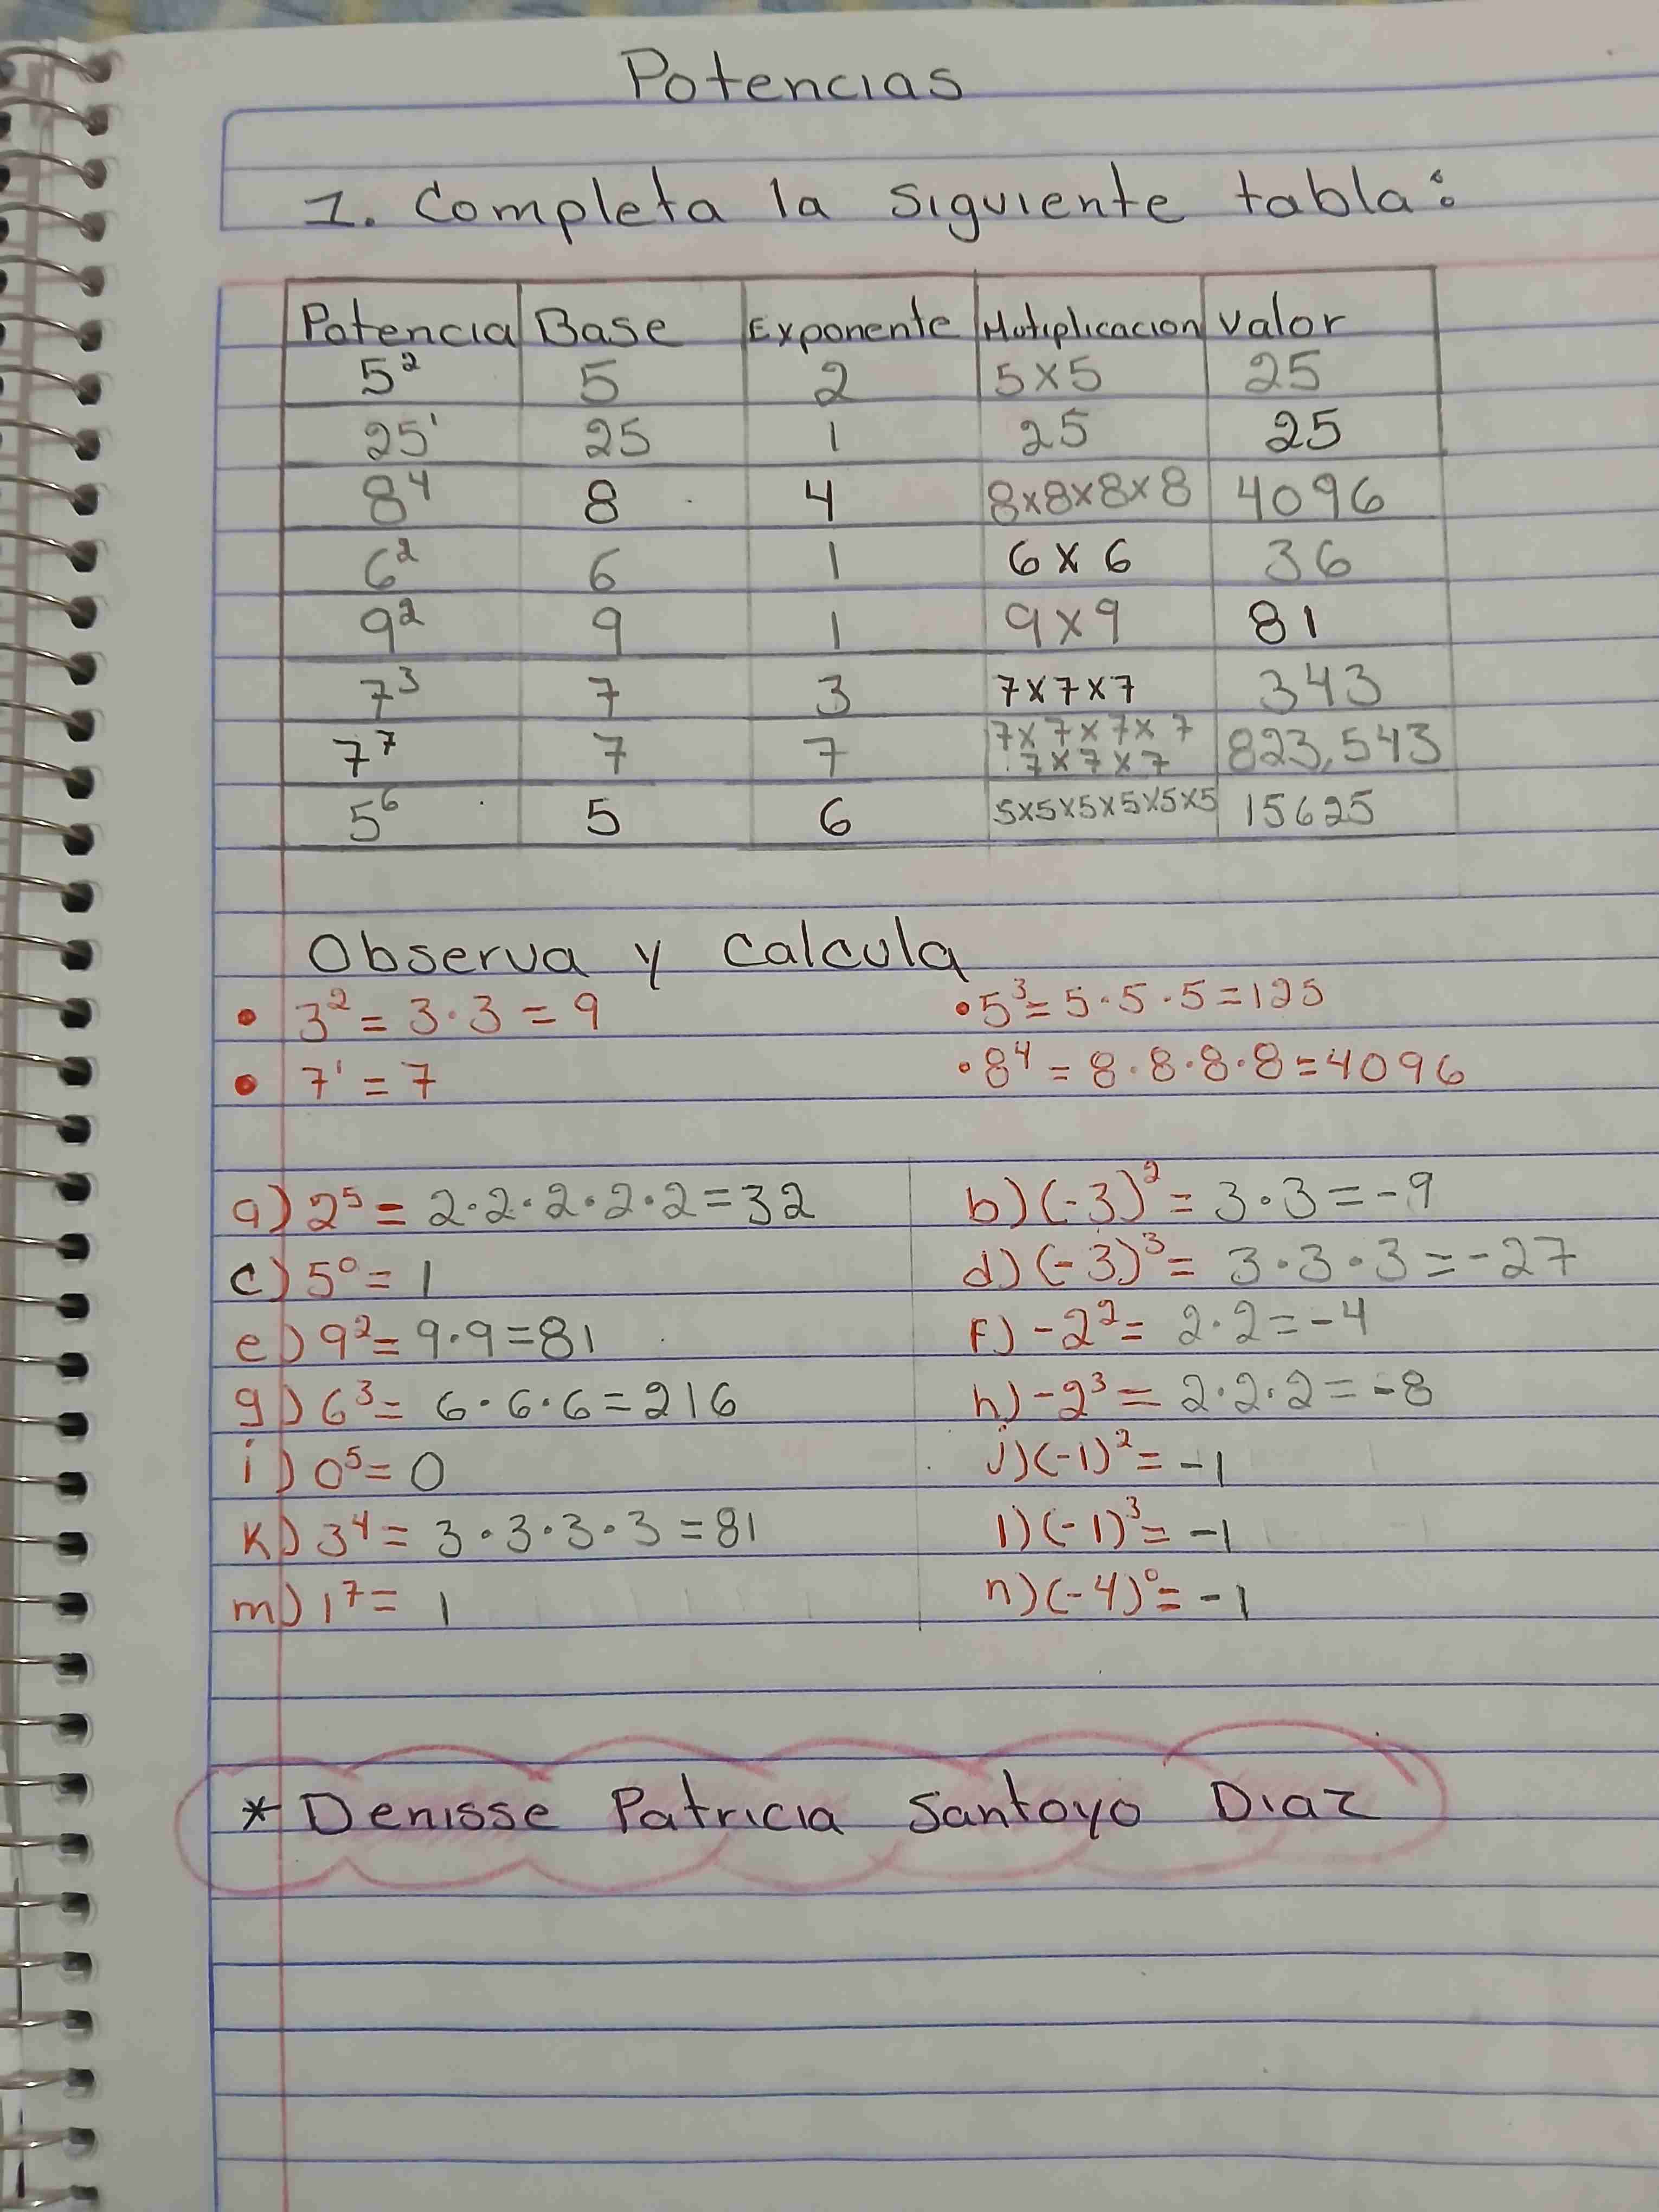 Potencias
1. Completa la siguiente tabla:
Potencia Base Exponente Mutiplicacion valor
5² 5 2 5x5 25
25¹ 25 1 25 25
8⁴ 8 4 8x8x8x8 4096
6² 6 1 6x6 36
9² 9 1 9x9 81
7³ 7 3 7x7x7 343
7⁷ 7 7 7x7x7x7 7x7x7 823,543
5⁶ 5 6 5x5x5x5x5x5 15625
Observa y calcula
• 3² = 3·3 = 9 • 5³= 5·5·5=125
• 7¹ = 7 • 8⁴ = 8·8·8·8=4096
a) 2⁵ = 2·2·2·2·2=32 b) (-3)² = 3·3=-9
c) 5⁰ = 1 d) (-3)³ = 3·3·3=-27
e) 9²= 9·9=81 f) -2²= 2·2=-4
g) 6³= 6·6·6=216 h) -2³ = 2·2·2=-8
i) 0⁵= 0 j) (-1)² = -1
k) 3⁴ = 3·3·3·3 =81 l) (-1)³ = -1
m) 1⁷ = 1 n) (-4)⁰ = -1
* Denisse Patricia Santoyo Diaz